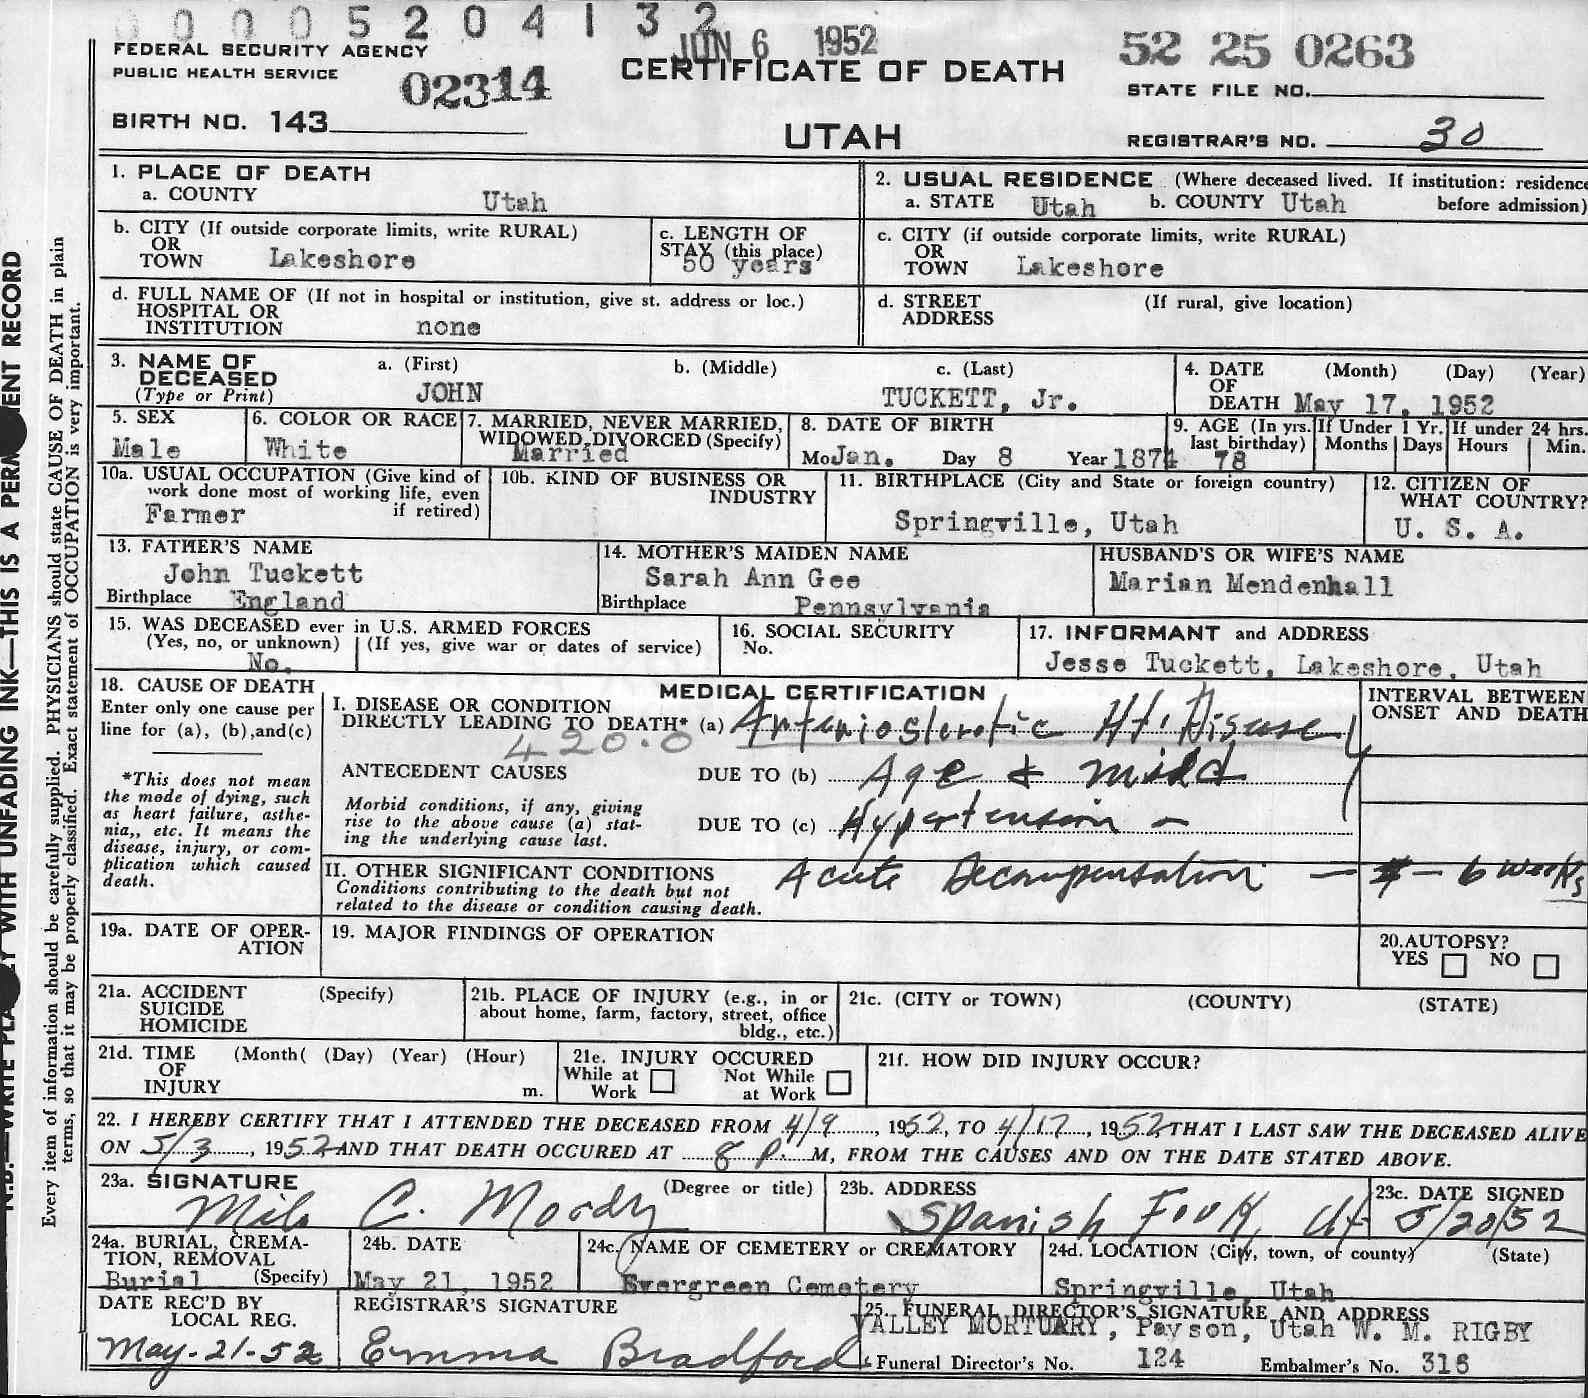 0 0 0 5 2 0 4 1 3 2
JUN 6 1952
52 25 0263
FEDERAL SECURITY AGENCY
PUBLIC HEALTH SERVICE
02314
CERTIFICATE OF DEATH
STATE FILE NO.
BIRTH NO. 143
UTAH
REGISTRAR'S NO. 30
1. PLACE OF DEATH
a. COUNTY Utah
2. USUAL RESIDENCE (Where deceased lived. If institution: residence
a. STATE Utah b. COUNTY Utah before admission)
b. CITY (If outside corporate limits, write RURAL)
OR
TOWN Lakeshore
c. LENGTH OF
STAY (this place)
50 years
c. CITY (if outside corporate limits, write RURAL)
OR
TOWN Lakeshore
d. FULL NAME OF (If not in hospital or institution, give st. address or loc.)
HOSPITAL OR
INSTITUTION none
d. STREET (If rural, give location)
ADDRESS
3. NAME OF
DECEASED
(Type or Print)
a. (First) b. (Middle) c. (Last)
JOHN TUCKETT, Jr.
4. DATE (Month) (Day) (Year)
OF
DEATH May 17, 1952
5. SEX
Male
6. COLOR OR RACE
White
7. MARRIED, NEVER MARRIED,
WIDOWED, DIVORCED (Specify)
Married
8. DATE OF BIRTH
Mo Jan. Day 8 Year 1874
9. AGE (In yrs.
last birthday)
78
If Under 1 Yr.
Months Days
If under 24 hrs.
Hours Min.
10a. USUAL OCCUPATION (Give kind of
work done most of working life, even
if retired)
Farmer
10b. KIND OF BUSINESS OR
INDUSTRY
11. BIRTHPLACE (City and State or foreign country)
Springville, Utah
12. CITIZEN OF
WHAT COUNTRY?
U. S. A.
13. FATHER'S NAME
John Tuckett
Birthplace England
14. MOTHER'S MAIDEN NAME
Sarah Ann Gee
Birthplace Pennsylvania
HUSBAND'S OR WIFE'S NAME
Marian Mendenhall
15. WAS DECEASED ever in U.S. ARMED FORCES
(Yes, no, or unknown) (If yes, give war or dates of service)
No.
16. SOCIAL SECURITY
No.
17. INFORMANT and ADDRESS
Jesse Tuckett, Lakeshore, Utah
18. CAUSE OF DEATH
Enter only one cause per
line for (a), (b),and(c)
*This does not mean
the mode of dying, such
as heart failure, asthe-
nia,, etc. It means the
disease, injury, or com-
plication which caused
death.
MEDICAL CERTIFICATION
INTERVAL BETWEEN
ONSET AND DEATH
I. DISEASE OR CONDITION
DIRECTLY LEADING TO DEATH* (a) Arteriosclerotic Ht. Disease
420.0
ANTECEDENT CAUSES DUE TO (b) Age & mild
Morbid conditions, if any, giving
rise to the above cause (a) stat-
ing the underlying cause last.
DUE TO (c) Hypertension -
II. OTHER SIGNIFICANT CONDITIONS
Conditions contributing to the death but not
related to the disease or condition causing death.
Acute Decompensation — — 6 weeks
19a. DATE OF OPER-
ATION
19. MAJOR FINDINGS OF OPERATION
20. AUTOPSY?
YES NO
21a. ACCIDENT (Specify)
SUICIDE
HOMICIDE
21b. PLACE OF INJURY (e.g., in or
about home, farm, factory, street, office
bldg., etc.)
21c. (CITY or TOWN) (COUNTY) (STATE)
21d. TIME (Month( (Day) (Year) (Hour)
OF
INJURY m.
21e. INJURY OCCURED
While at Not While
Work at Work
21f. HOW DID INJURY OCCUR?
22. I HEREBY CERTIFY THAT I ATTENDED THE DECEASED FROM 4/9, 1952, TO 4/17, 1952 THAT I LAST SAW THE DECEASED ALIVE
ON 5/3, 1952 AND THAT DEATH OCCURED AT 8 P. M, FROM THE CAUSES AND ON THE DATE STATED ABOVE.
23a. SIGNATURE (Degree or title)
Milo C. Moody
23b. ADDRESS
Spanish Fork, Ut
23c. DATE SIGNED
5/20/52
24a. BURIAL, CREMA-
TION, REMOVAL
Burial (Specify)
24b. DATE
May 21, 1952
24c. NAME OF CEMETERY or CREMATORY
Evergreen Cemetery
24d. LOCATION (City, town, of county) (State)
Springville, Utah
DATE REC'D BY
LOCAL REG.
May-21-52
REGISTRAR'S SIGNATURE
Emma Bradford
25. FUNERAL DIRECTOR'S SIGNATURE AND ADDRESS
VALLEY MORTUARY, Payson, Utah W. M. RIGBY
Funeral Director's No. 124 Embalmer's No. 316
Every item of information should be carefully supplied. PHYSICIANS should state CAUSE OF DEATH in plain
terms, so that it may be properly classified. Exact statement of OCCUPATION is very important.
N.B.—WRITE PLA LY WITH UNFADING INK—THIS IS A PERM ENT RECORD